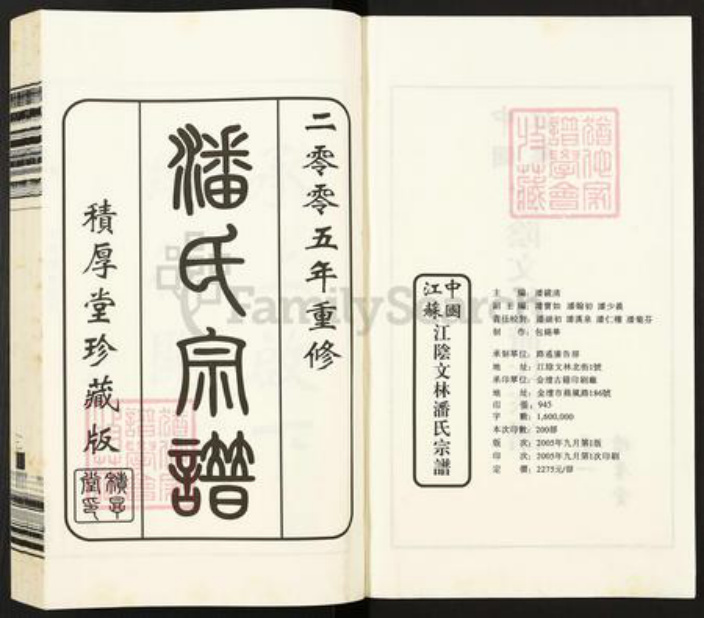 二零零五年重修
潘氏宗譜
積厚堂珍藏版
積厚堂印
FamilySearch
中國
江蘇
江陰文林潘氏宗譜
主 編:
副主編: 潘少義
責任校對: 潘仁權 潘菊芬
制 作: 包錫華
承制單位: 路遙廣告部
地 址: 江陰文林北街1號
承印單位: 金壇古籍印刷廠
地 址: 金壇市薛風路186號
印 張: 945
字 數: 1,600,000
本次印數: 200部
版 次: 2005年九月第1版
印 次: 2005年九月第1次印刷
定 價: 2275元/部
譜學會
收藏